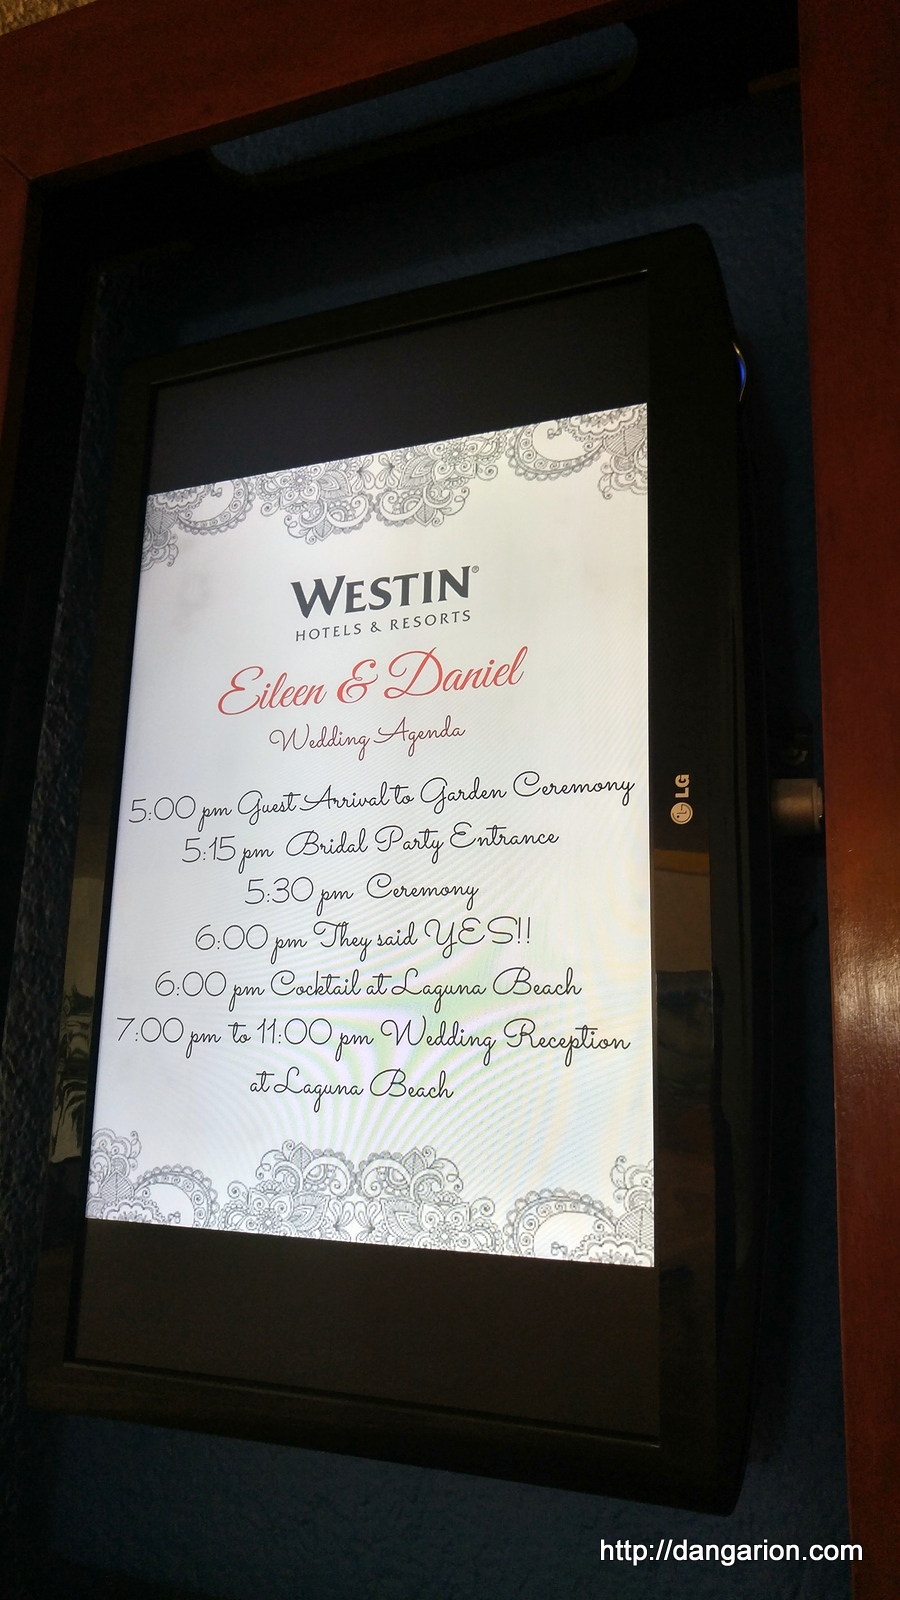 WESTIN®
HOTELS & RESORTS
Eileen & Daniel
Wedding Agenda
5:00 pm Guest Arrival to Garden Ceremony
5:15 pm Bridal Party Entrance
5:30 pm Ceremony
6:00 pm They said YES!!
6:00 pm Cocktail at Laguna Beach
7:00 pm to 11:00 pm Wedding Reception
at Laguna Beach
LG
http://dangarion.com